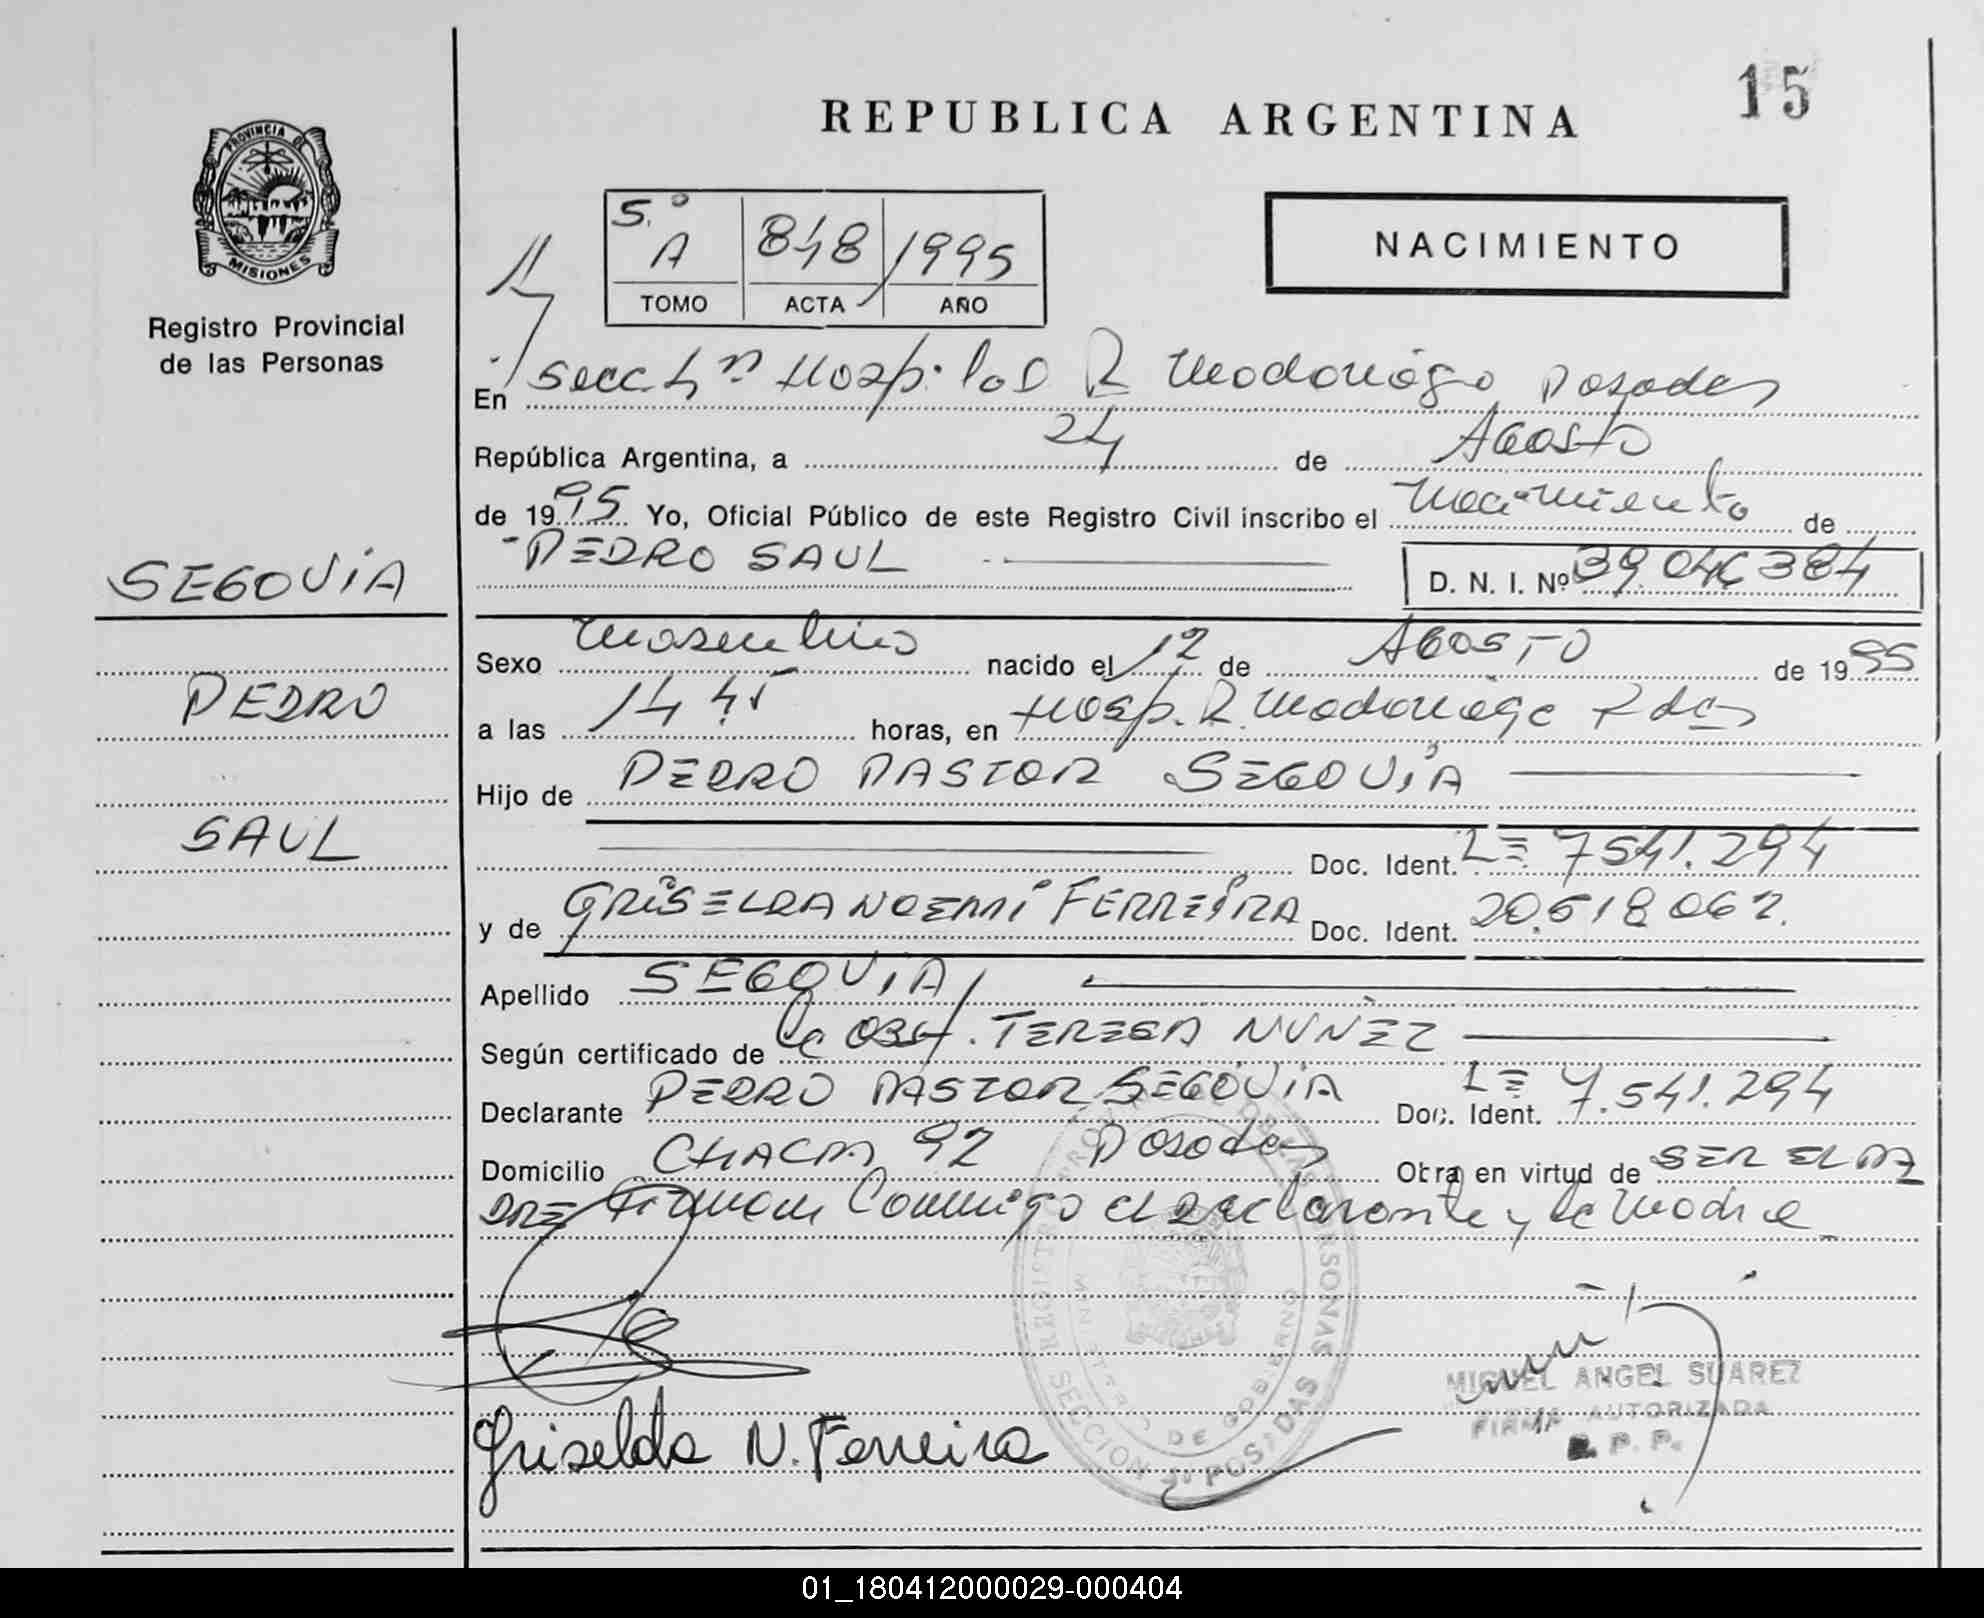 15
REPUBLICA ARGENTINA
PROVINCIA DE
MISIONES
Registro Provincial
de las Personas
NACIMIENTO
5.º A 848 1995
TOMO ACTA AÑO
En Secc 4ª Hosp. R Madariaga Posadas
República Argentina, a 24 de Agosto
de 1995 Yo, Oficial Público de este Registro Civil inscribo el Nacimiento de
PEDRO SAUL D. N. I. Nº 39.046384
SEGOVIA
Sexo Masculino nacido el 12 de AGOSTO de 1995
PEDRO
a las 14 45 horas, en Hosp. R. Madariaga Pdas
Hijo de PEDRO PASTOR SEGOVIA
SAUL
Doc. Ident. LE 7541.294
y de GRISELDA NOEMI FERREIRA Doc. Ident. 20.618.062.
Apellido SEGOVIA
Según certificado de la OBST. TERESA NUÑEZ
Declarante PEDRO PASTOR SEGOVIA Doc. Ident. LE 7.541.294
Domicilio CHACRA 92 Posadas Otra en virtud de SER EL PA
DRE Firman Conmigo el declarante y la Madre
REGISTRO PROVINCIAL DE LAS PERSONAS
MINISTERIO DE GOBIERNO
SECCION POSADAS
MIGUEL ANGEL SUAREZ
FIRMA AUTORIZADA
R. P. P.
Griselda N. Ferreira
01_180412000029-000404